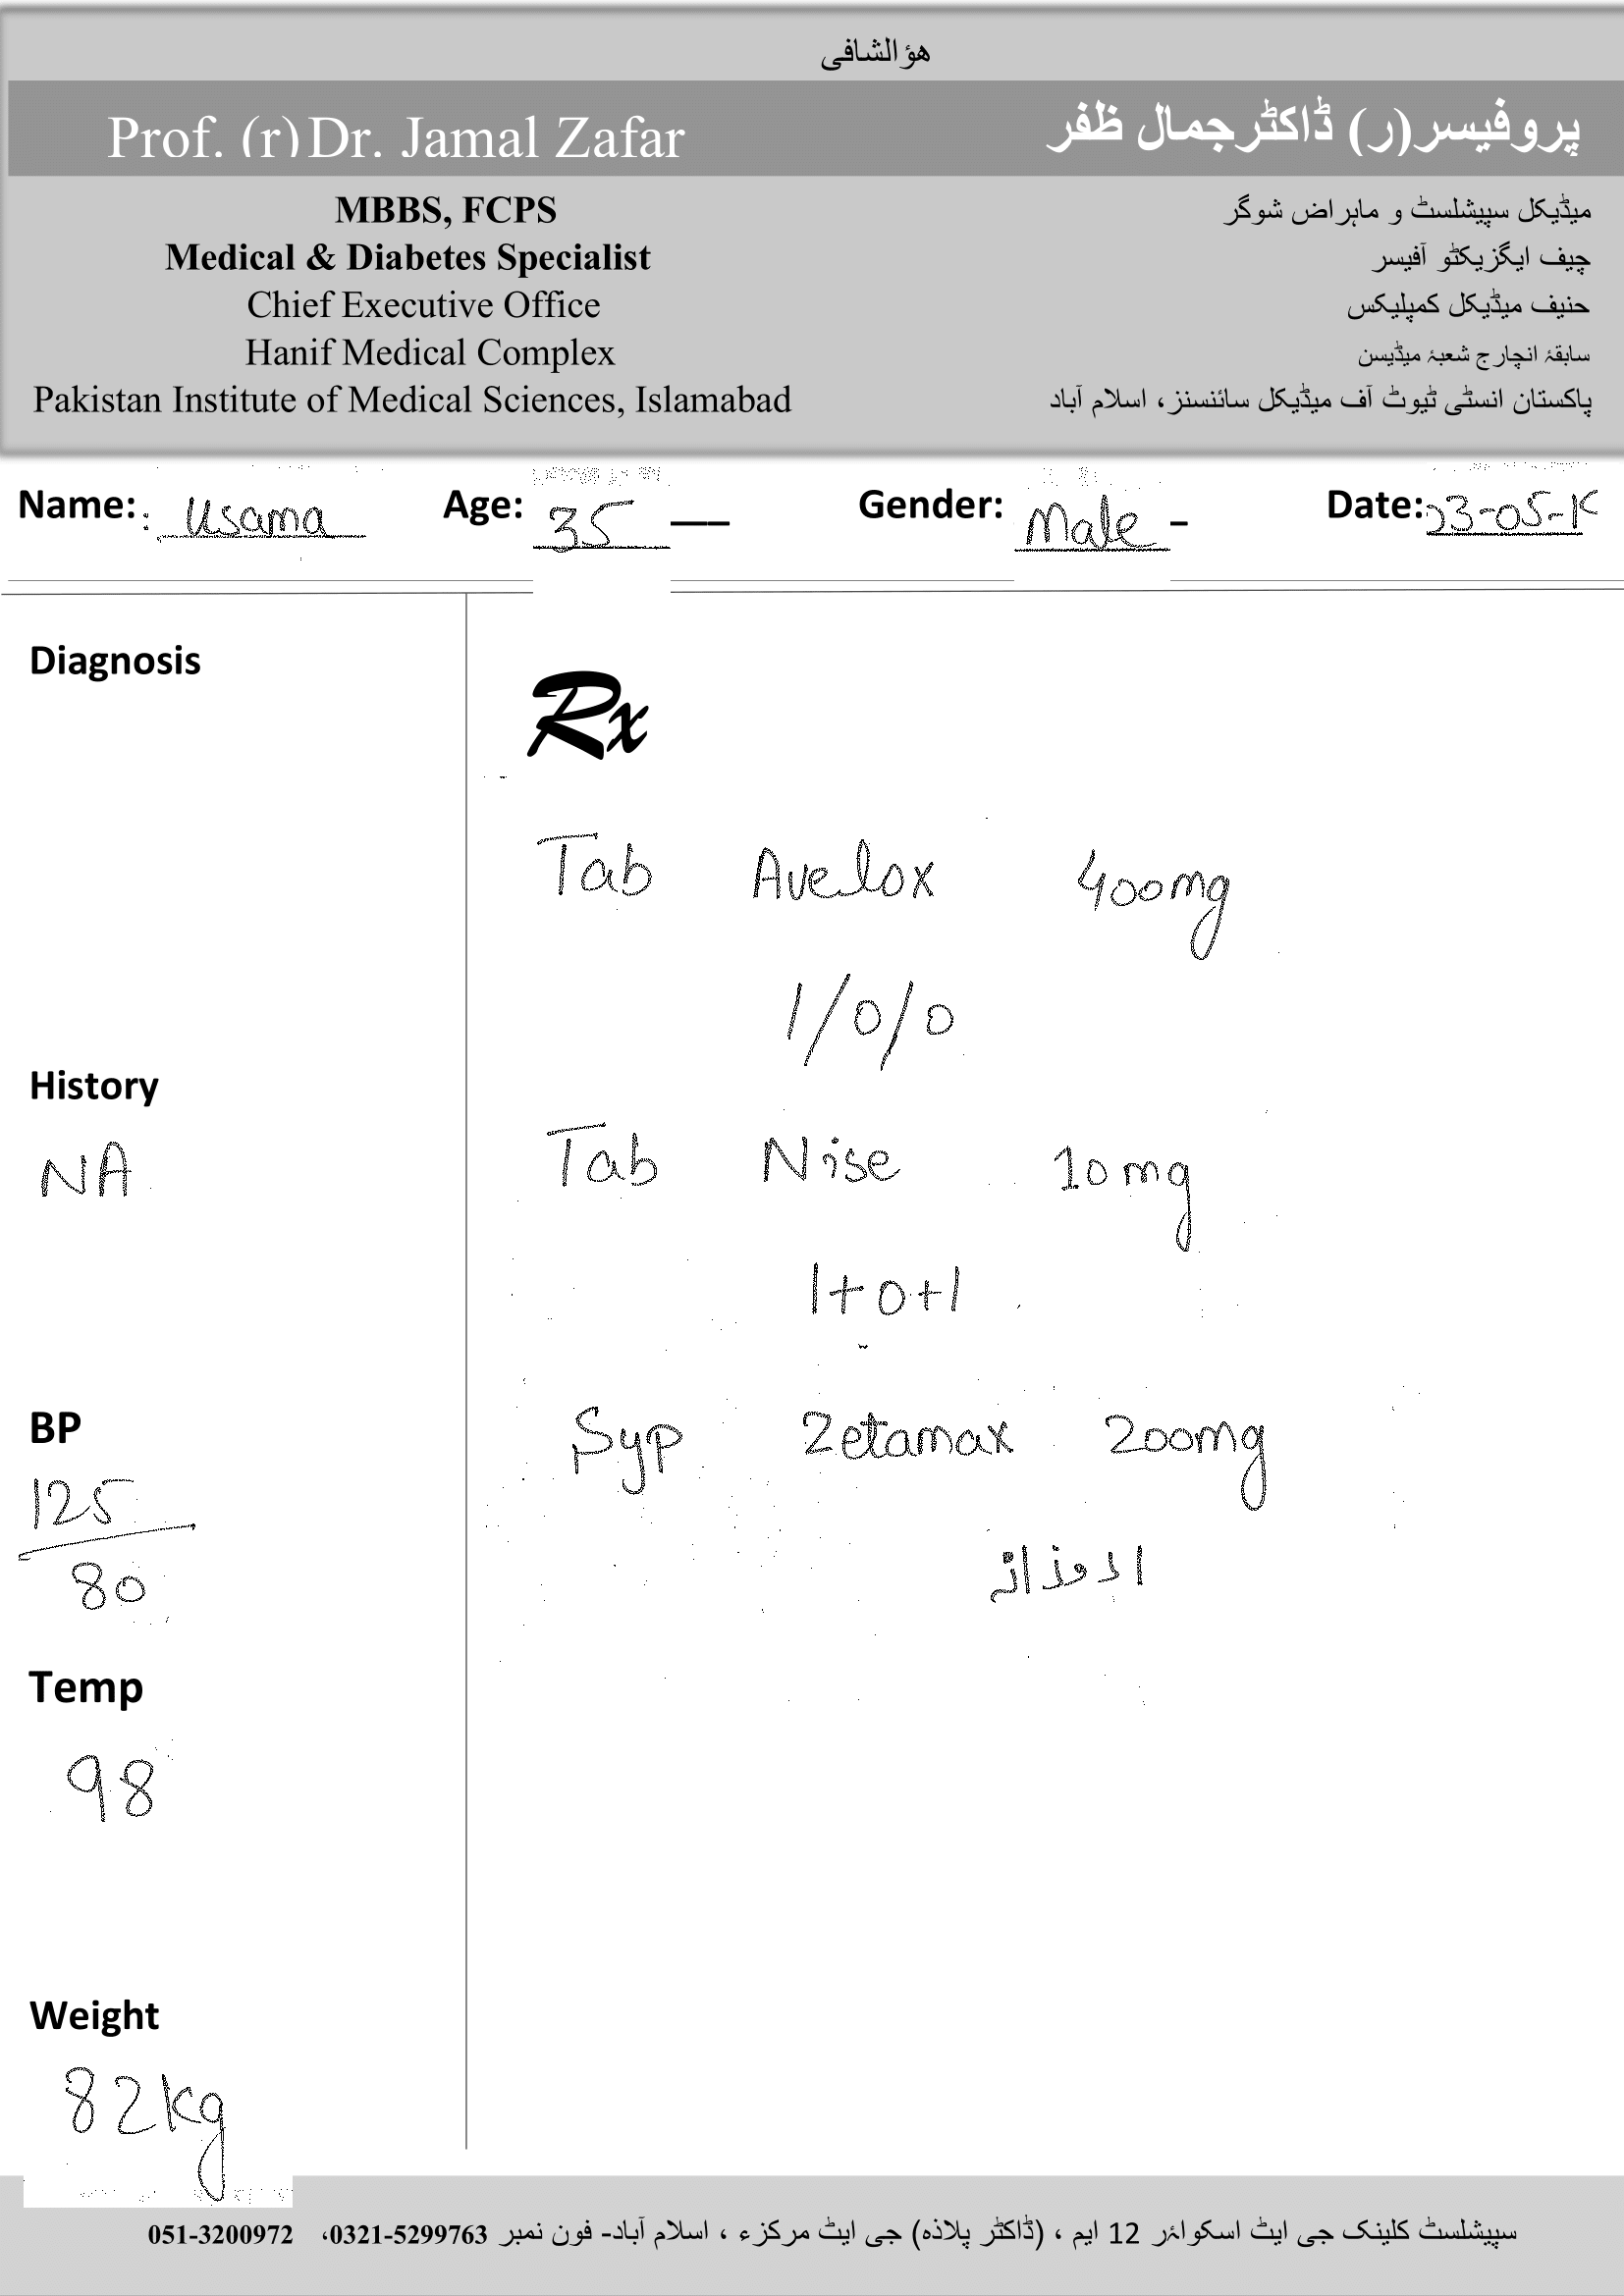 ھؤالشافی
Prof. (r) Dr. Jamal Zafar
پروفیسر(ر) ڈاکٹرجمال ظفر
MBBS, FCPS
Medical & Diabetes Specialist
Chief Executive Office
Hanif Medical Complex
Pakistan Institute of Medical Sciences, Islamabad
میڈیکل سپیشلسٹ و ماہراض شوگر
چیف ایگزیکٹو آفیسر
حنیف میڈیکل کمپلیکس
سابقۂ انچارج شعبۂ میڈیسن
پاکستان انسٹی ٹیوٹ آف میڈیکل سائنسنز، اسلام آباد
Name: Usama Age: 35 Gender: Male Date:
Diagnosis
History
NA
BP
125
80
Temp
98
Weight
82kg
Rx
Tab Avelox 400mg
1/0/0
Tab Nise 10mg
1+0+1
Syp Zetamax 200mg
سپیشلسٹ کلینک جی ایٹ اسکوائر 12 ایم ، (ڈاکٹر پلاذہ) جی ایٹ مرکزء ، اسلام آباد- فون نمبر 0321-5299763، 051-3200972